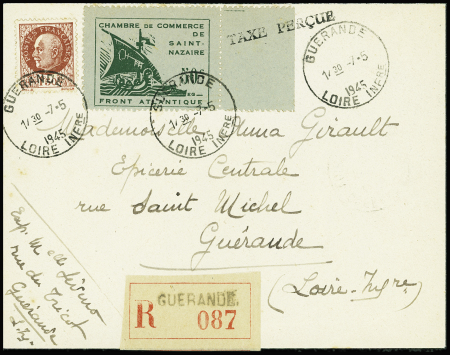 POSTES FRANÇAISES
CHAMBRE DE COMMERCE
DE
SAINT-
NAZAIRE
FRONT ATLANTIQUE
TAXE PERÇUE
GUERANDE
1/30 -7-5
1945
LOIRE INFRE
GUERANDE
1/30 -7-5
1945
LOIRE INFRE
GUERANDE
1/30 -7-5
1945
LOIRE INFRE
Mademoiselle Anna Girault
Epicerie Centrale
rue Saint Michel
Guérande
(Loire-Infre)
Exp. Melle
rue du Tricot
Guérande
GUERANDE.
R 087